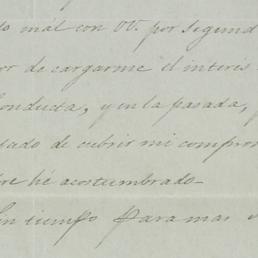 mál con VV. por segund
or de cargarme el interés
Conducta, y en la pasada,
sado de cubrir mi compro
re hé acostumbrado_
Sin tiempo para mas